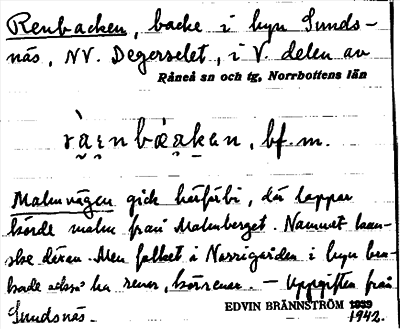 Renbacken, backe i byn Sunds-
näs, NV. Degerselet, i V. delen av
Råneå sn och tg, Norrbottens län
bf. m.
Malmvägen gick härförbi, där lappar
körde malm från Malmberget. Namnet kan-
ske därav. Men folket å Norrigården i byn bru-
kade också ha renar, körrenar. – Uppgiften från
Sundsnäs. –
EDVIN BRÄNNSTRÖM 1939
1942.